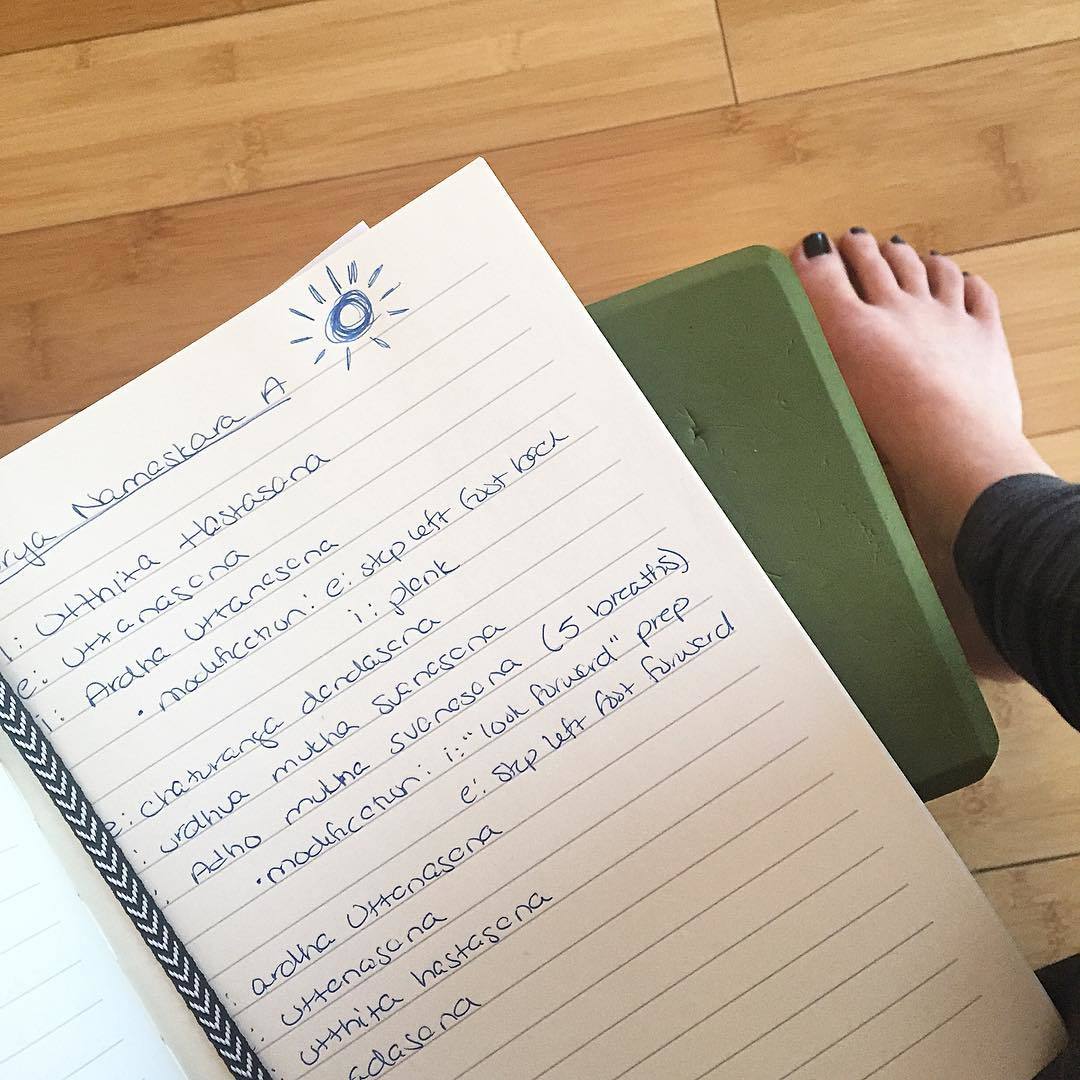 rya Namaskara A
i: Utthita Hastasana
e: Uttanasana
i: Ardha Uttanasana
• modification: e: step left foot back
i: plank
e: chaturanga dandasana
: urdhva mukha svanasana
: Adho mukha svanasana (5 breaths)
• modification: i: "look forward" prep
e: step left foot forward
: ardha Uttanasana
: Uttanasana
: Utthita hastasana
adasana